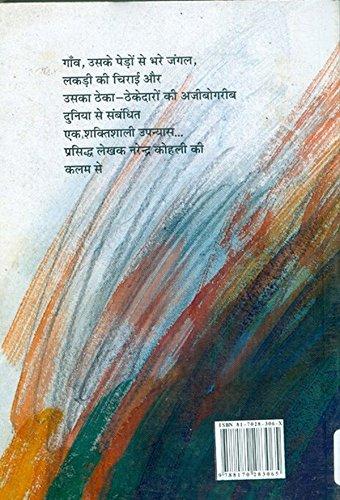 गाँव, उसके पेड़ों से भरे जंगल,
लकड़ी की चिराई और
उसका ठेका–ठेकेदारों की अजीबोगरीब
दुनिया से संबंधित
एक शक्तिशाली उपन्यास...
प्रसिद्ध लेखक नरेन्द्र कोहली की
कलम से
ISBN 81-7028-306-X
9788170283065